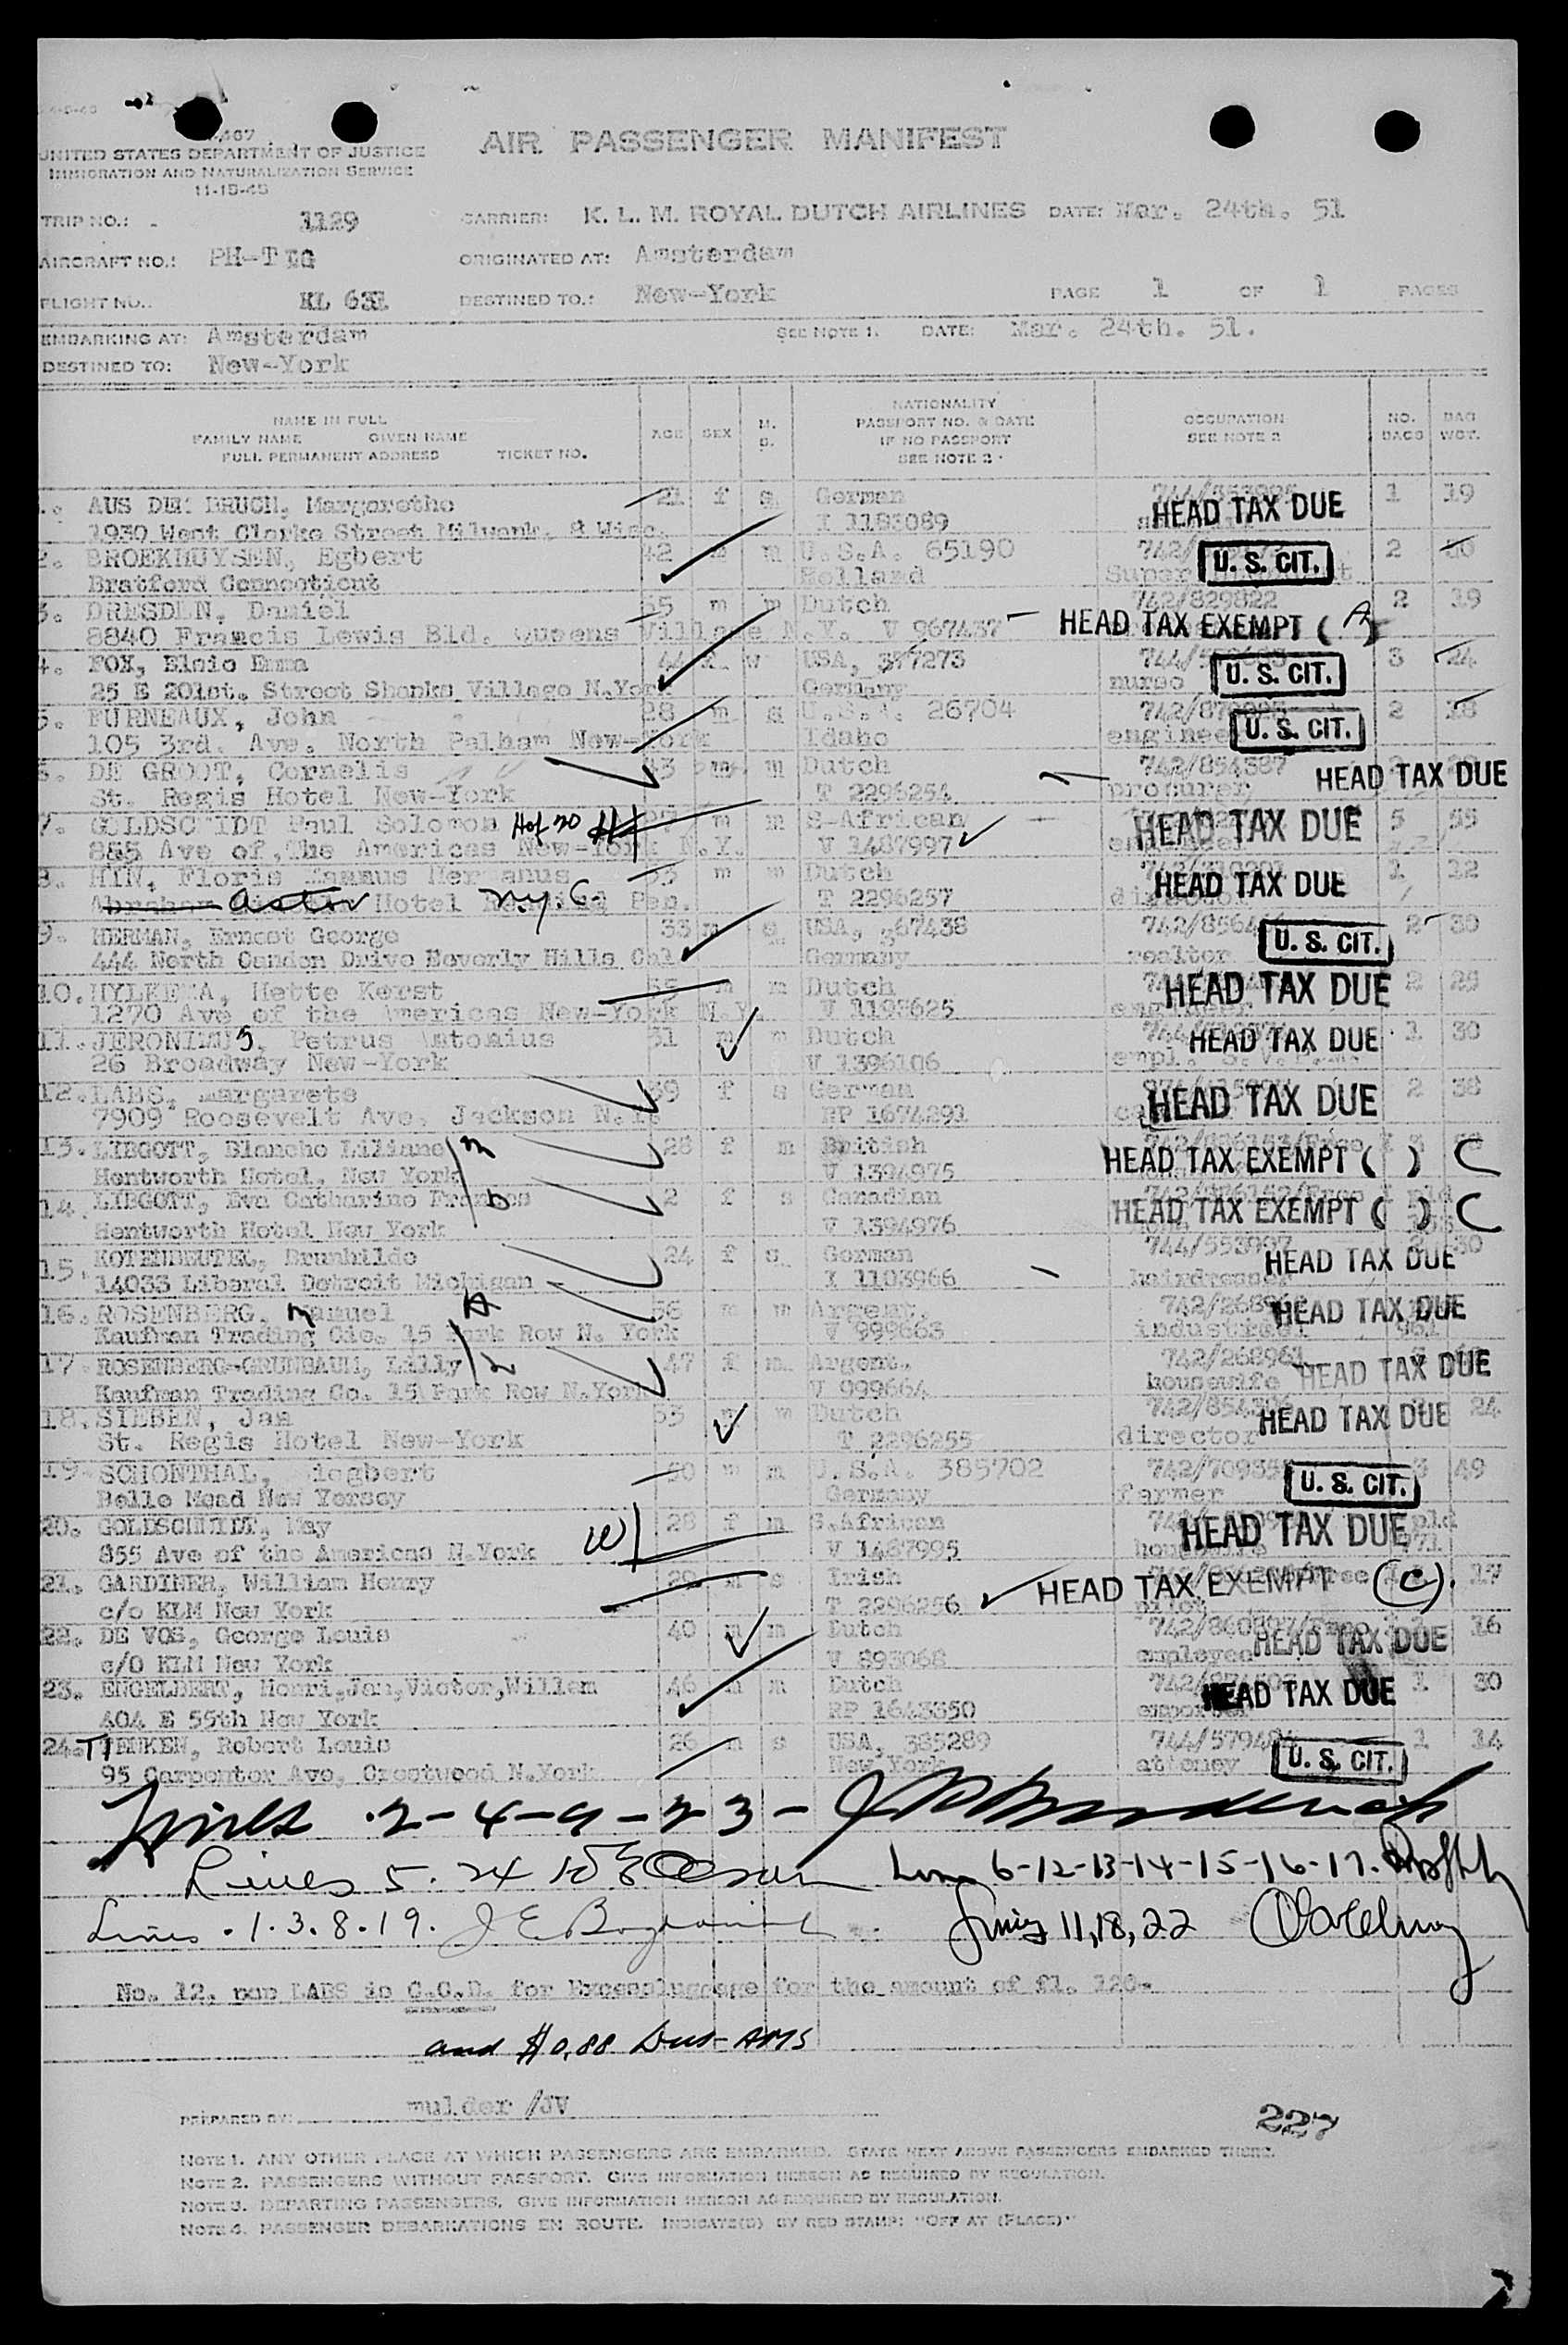 UNITED STATES DEPARTMENT OF JUSTICE
IMMIGRATION AND NATURALIZATION SERVICE
11-15-45
AIR PASSENGER MANIFEST
TRIP NO.: 1129 CARRIER: K. L. M. ROYAL DUTCH AIRLINES DATE: Mar. 24th. 51
AIRCRAFT NO.: PH-T G ORIGINATED AT: Amsterdam
FLIGHT NO.: KL 631 DESTINED TO.: New-York PAGE 1 OF 1 PAGES
EMBARKING AT: Amsterdam SEE NOTE 1. DATE: Mar. 24th. 51.
DESTINED TO: New-York
NAME IN FULL
FAMILY NAME GIVEN NAME
FULL PERMANENT ADDRESS TICKET NO.
AGE SEX M. S. NATIONALITY PASSPORT NO. & DATE IF NO PASSPORT SEE NOTE 2 OCCUPATION SEE NOTE 2 NO. BAGS BAG WGT.
1. AUS DEM BRUCH, Margarethe 21 f s German HEAD TAX DUE 1 19
1930 West Clarke Street Milwauk. 8 Wisc. I 1183089
2. BROEKHUYSEN, Egbert 42 m m U.S.A. 65190 742/ U. S. CIT. 2 30
Bratford Connecticut Holland Super t
3. DRESDEN, Daniel 55 m m Dutch 742/829822 2 19
8840 Francis Lewis Bld. Queens Village N.Y. V 967437 HEAD TAX EXEMPT ( A )
4. FOX, Elsie Emma 44 f w USA, 377273 744/ U. S. CIT. 3 24
25 E 201st. Street Shanks Village N.York Germany nurse
5. FURNEAUX, John 28 m s U.S.A. 26704 742/ U. S. CIT. 2 18
105 3rd. Ave. North Pelham New-York Idaho engineer
6. DE GROOT, Cornelis 43 m m Dutch 742/854387 HEAD TAX DUE
St. Regis Hotel New-York T 2296254 procurer
7. GOLDSCHMIDT Paul Solomon Hof 20 m m S-African HEAD TAX DUE 5 55
855 Ave of The Americas New-York N.Y. V 1487997
8. HIN, Floris Hermanus 53 m m Dutch HEAD TAX DUE 1 12
Abraham Astor Hotel Reading Pen. N.Y.C. T 2296257
9. HERMAN, Ernest George 33 m s USA, 67438 742/856 U. S. CIT. 2 30
444 North Camden Drive Beverly Hills Cal Germany realtor
10. HYLKEMA, Hette Kerst 55 m m Dutch HEAD TAX DUE 2 29
1270 Ave of the Americas New-York N.Y. V 1193625 engineer
11. JERONIMUS, Petrus Antonius 31 m m Dutch HEAD TAX DUE 1 30
26 Broadway New-York V 1396106 empl.
12. LABS, Margarete 39 f s German HEAD TAX DUE 2 38
7909 Roosevelt Ave. Jackson N.Y. RP 1674293
13. LIBGOTT, Blanche Liliane 28 f m British
Wentworth Hotel, New York V 1394975 HEAD TAX EXEMPT ( ) C
14. LIBGOTT, Eva Catharine Frances 2 f s Canadian HEAD TAX EXEMPT ( ) C
Wentworth Hotel New York V 1394976
15. ROTENBEUTEL, Brunhilde 24 f s German 744/553997 HEAD TAX DUE 30
14033 Liberal Detroit Michigan I 1103966 hairdresser
16. ROSENBERG, Manuel 56 m m Argent. 742/26896 HEAD TAX DUE
Kaufman Trading Cie. 15 Park Row N. York V 999663 industrial
17. ROSENBERG-GRUNBAUM, Lilly 47 f m Argent. 742/268961 HEAD TAX DUE
Kaufman Trading Co. 15 Park Row N.York V 999664 housewife
18. SIEBEN, Jan 53 m m Dutch 742/854 HEAD TAX DUE 24
St. Regis Hotel New-York T 2296255 director
19. SCHONTHAL, Siegbert 50 m m U.S.A. 385702 742/70935 U. S. CIT. 3 49
Belle Mead New Yersey Germany farmer
20. GOLDSCHMIDT, May 28 f m S.African HEAD TAX DUE
855 Ave of the Americas N.York V 1487995 housewife
21. GARDINER, William Henry 29 m s Irish HEAD TAX EXEMPT (C). 17
c/o KLM New York T 2296256 pilot
22. DE VOS, George Louis 40 m m Dutch HEAD TAX DUE 16
c/O KLM New York V 893068 employee
23. ENGELBERT, Henri,Jan,Victor,Willem 46 m m Dutch HEAD TAX DUE 1 30
404 E 55th New York RP 1643350 exporter
24. TIENKEN, Robert Louis 26 m s USA, 385289 744/57948 U. S. CIT. 1 14
95 Carpenter Ave, Crestwood N.York New York attoney
Lines 2-4-9-23-
Lines 5. 24 Lines 6-12-13-14-15-16-17.
Lines . 1. 3. 8. 19. J E Lines 11, 18, 22
No. 12. LABS is C.O.D. for Excessluggage for the amount of fl. 126-
and $0,88 Dus-AMS
PREPARED BY: mulder /JV
227
NOTE 1. ANY OTHER PLACE AT WHICH PASSENGERS ARE EMBARKED. STATE NEXT ABOVE PASSENGERS EMBARKED THERE.
NOTE 2. PASSENGERS WITHOUT PASSPORT. GIVE INFORMATION HEREON AS REQUIRED BY REGULATION.
NOTE 3. DEPARTING PASSENGERS. GIVE INFORMATION HEREON AS REQUIRED BY REGULATION.
NOTE 4. PASSENGER DEBARKATIONS EN ROUTE. INDICATE(D) BY RED STAMP: "OFF AT (PLACE)"